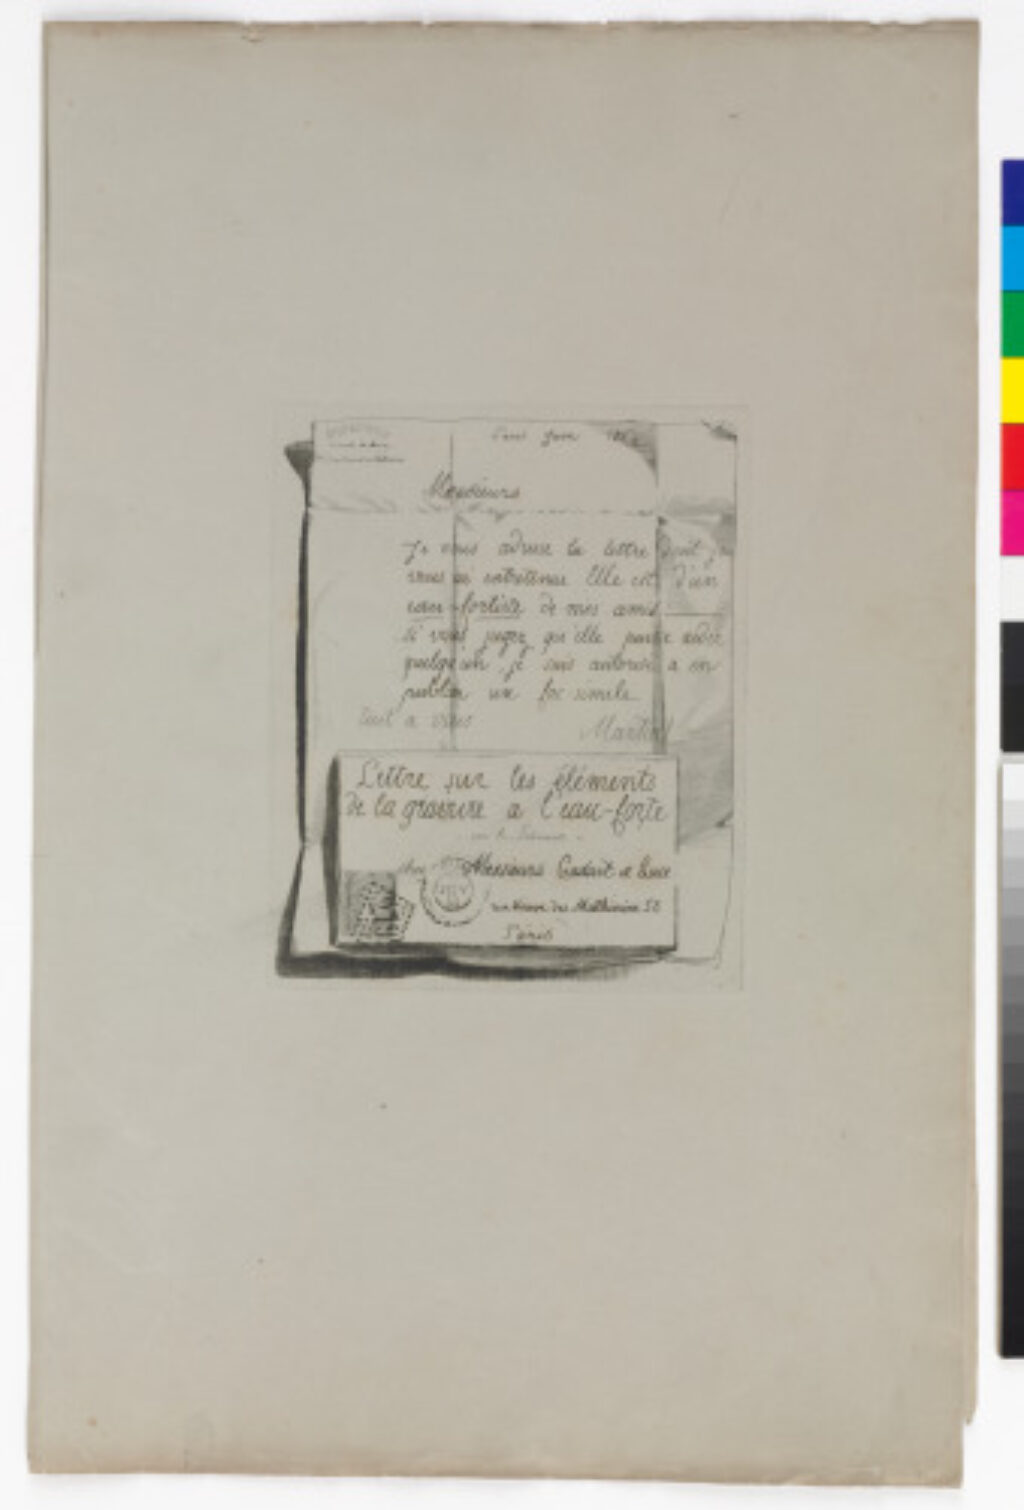 Messieurs
Je vous adresse la lettre dont je
vous ai entretenus Elle est d'un
eau-fortiste de mes amis
si vous jugez qu'elle puisse aider
quelqu'un je suis autorisé a en
publier un fac simile
tout a vous Martial
Lettre sur les éléments
de la gravure a l'eau-forte
chez Messieurs Cadart et Luce
rue Neuve des Mathurins 58
Paris